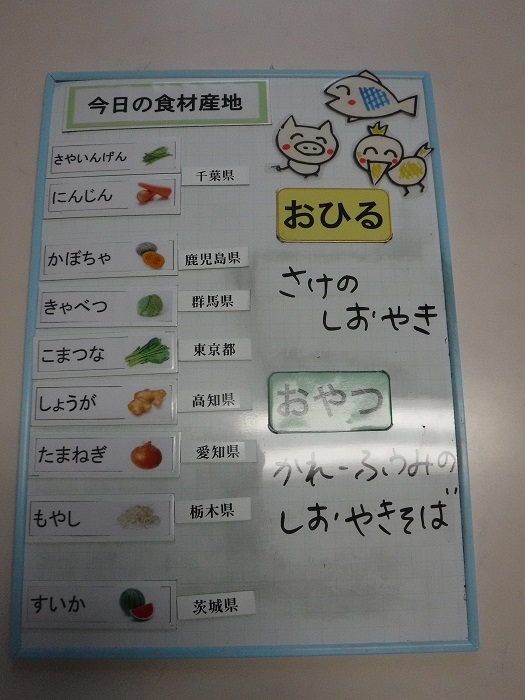 今日の食材産地
さやいんげん
にんじん
千葉県
かぼちゃ 鹿児島県
きゃべつ 群馬県
こまつな 東京都
しょうが 高知県
たまねぎ 愛知県
もやし 栃木県
すいか 茨城県
おひる
さけの
しおやき
おやつ
かれーふうみの
しおやきそば